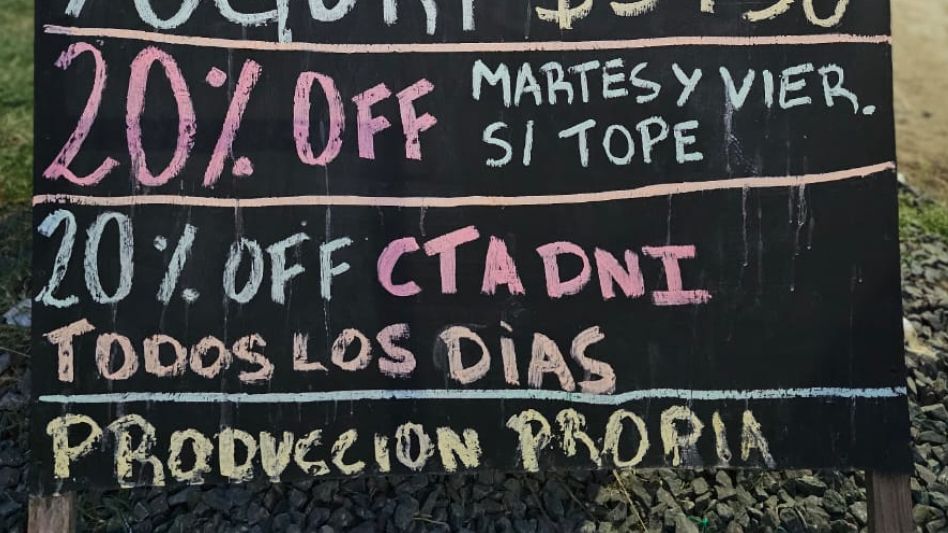 YOGURT $5450
20% OFF MARTES Y VIER.
SI TOPE
20% OFF CTA DNI
TODOS LOS DÍAS
PRODUCCION PROPIA